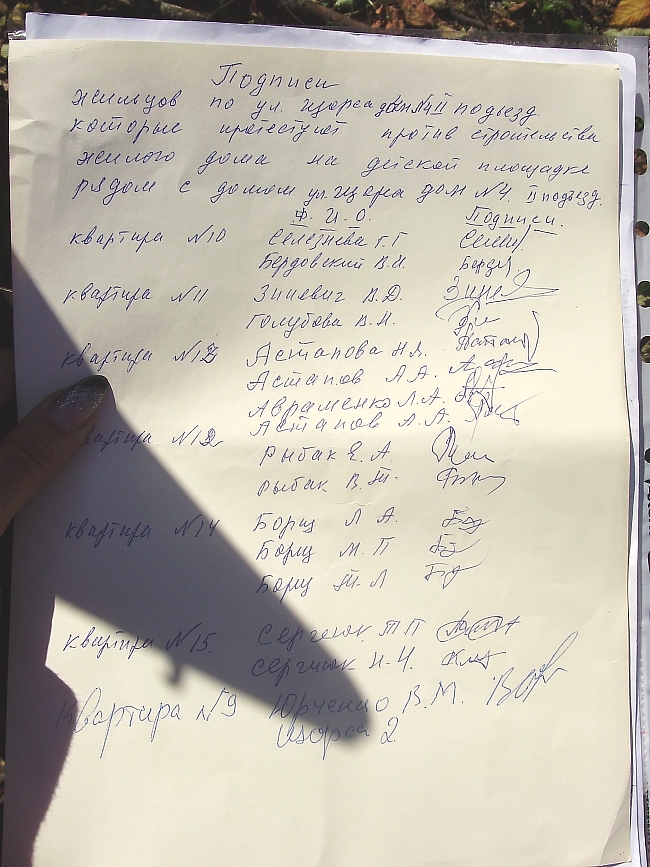 Подписи
жильцов по ул. Щорса дом №4 II подъезд
которые протестуют против строительства
жилого дома на детской площадке
рядом с домом ул. Щорса дом №4. II подъезд.
Ф. И. О. Подписи.
квартира №10 Селезнева Г.Г Селез
Бердовский В.И. Берд
квартира №11 Зиневич В.Д. Зине
Голубова В.Н.
квартира №13 Астапова Н.Я.
Астапов А А.
Авраменко Л.А.
Астапов А.А.
квартира №12 Рыбак Е. А
Рыбак В. Т.
квартира №14 Борщ Л А.
Борщ М. П
Борщ Т Л
квартира №15. Сергиюк Т П
Сергиюк Н. И.
Квартира №9 Юрченко В. М.
Щорса 2